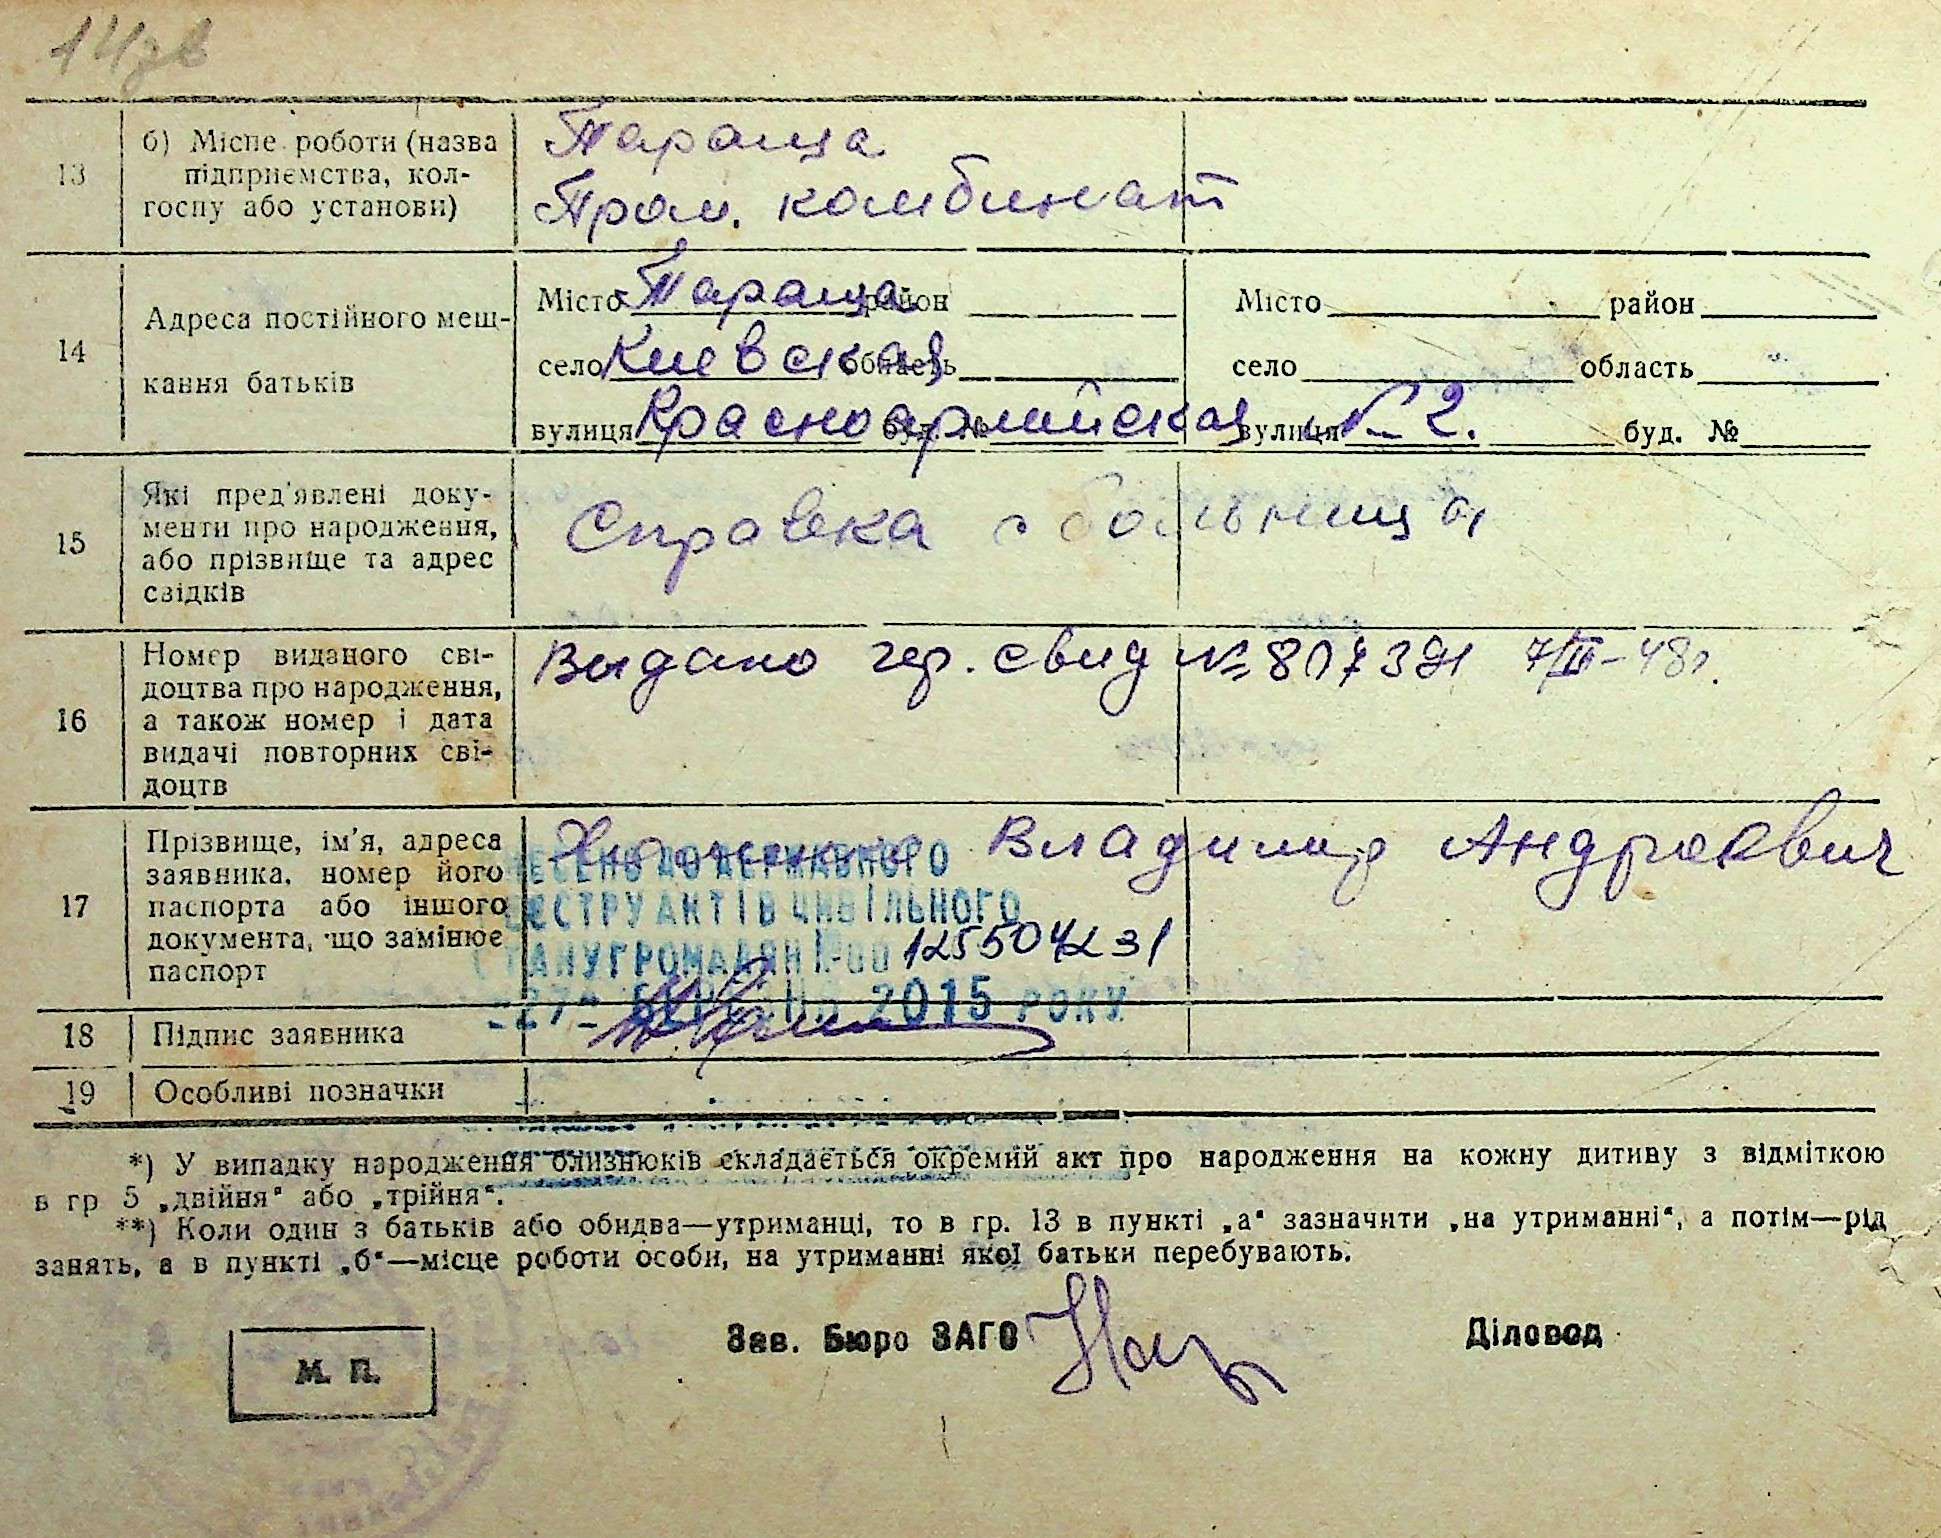 14зв
13
б) Місце роботи (назва
підприємства, кол-
госпу або установи)
Тараща
Пром. комбинат
14
Адреса постійного меш-
кання батьків
Місто Тараща район
село Киевская область
вулиця Красноармийская буд. №
Місто район
село область
вулиця № 2. буд. №
15
Які пред'явлені доку-
менти про народження,
або прізвище та адрес
свідків
Справка с больници
16
Номєр виданого сві-
доцтва про народження,
а також номер і дата
видачі повторних сві-
доцтв
Выдано гер. свид № 807391 7/III-48г.
17
Прізвище, ім'я, адреса
заявника, номер його
паспорта або іншого
документа, що замінює
паспорт
Владимир Андреевич
ВНЕСЕНО ДО ДЕРЖАВНОГО
РЕЄСТРУ АКТІВ ЦИВІЛЬНОГО
СТАНУ ГРОМАДЯН №00 125504231
"27" БЕРЕЗНЯ 2015 РОКУ
18
Підпис заявника
19
Особливі позначки
*) У випадку народження близнюків складається окремий акт про народження на кожну дитину з відміткою
в гр 5 „двійня“ або „трійня“.
**) Коли один з батьків або обидва—утриманці, то в гр. 13 в пункті „а“ зазначити „на утриманні“, а потім—рід
занять, а в пункті „б“—місце роботи особи, на утриманні якої батьки перебувають.
Зав. Бюро ЗАГС
Діловод
М. П.